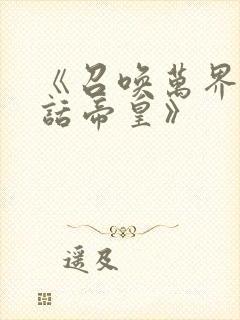 《召喚萬界
話帝皇》
遥及